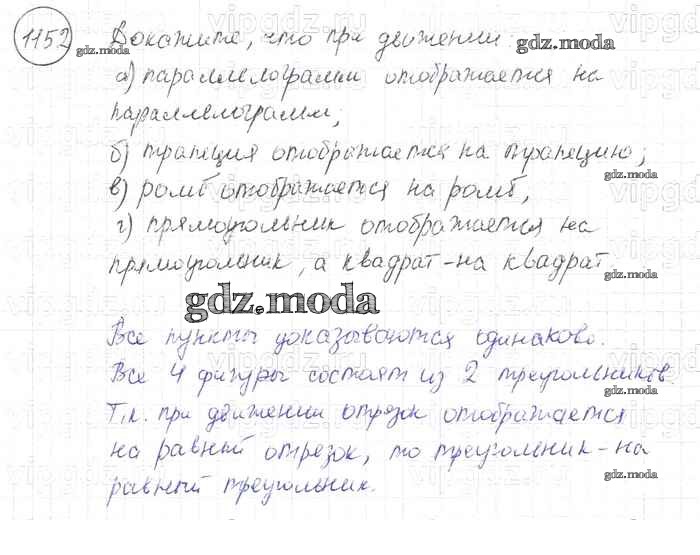 1152 Докажите, что при движении:
gdz.moda
а) параллелограмм отображается на
параллелограмм;
б) трапеция отображается на трапецию;
gdz.moda
в) ромб отображается на ромб,
gdz.moda
г) прямоугольник отображается на
прямоугольник, а квадрат-на квадрат
gdz.moda
gdz.moda
Все пункты доказываются одинаково.
Все 4 фигуры состоят из 2 треугольников.
gdz.moda
Т.к. при движении отрезок отображается
на равный отрезок, то треугольник-на
gdz.moda
равный треугольник.